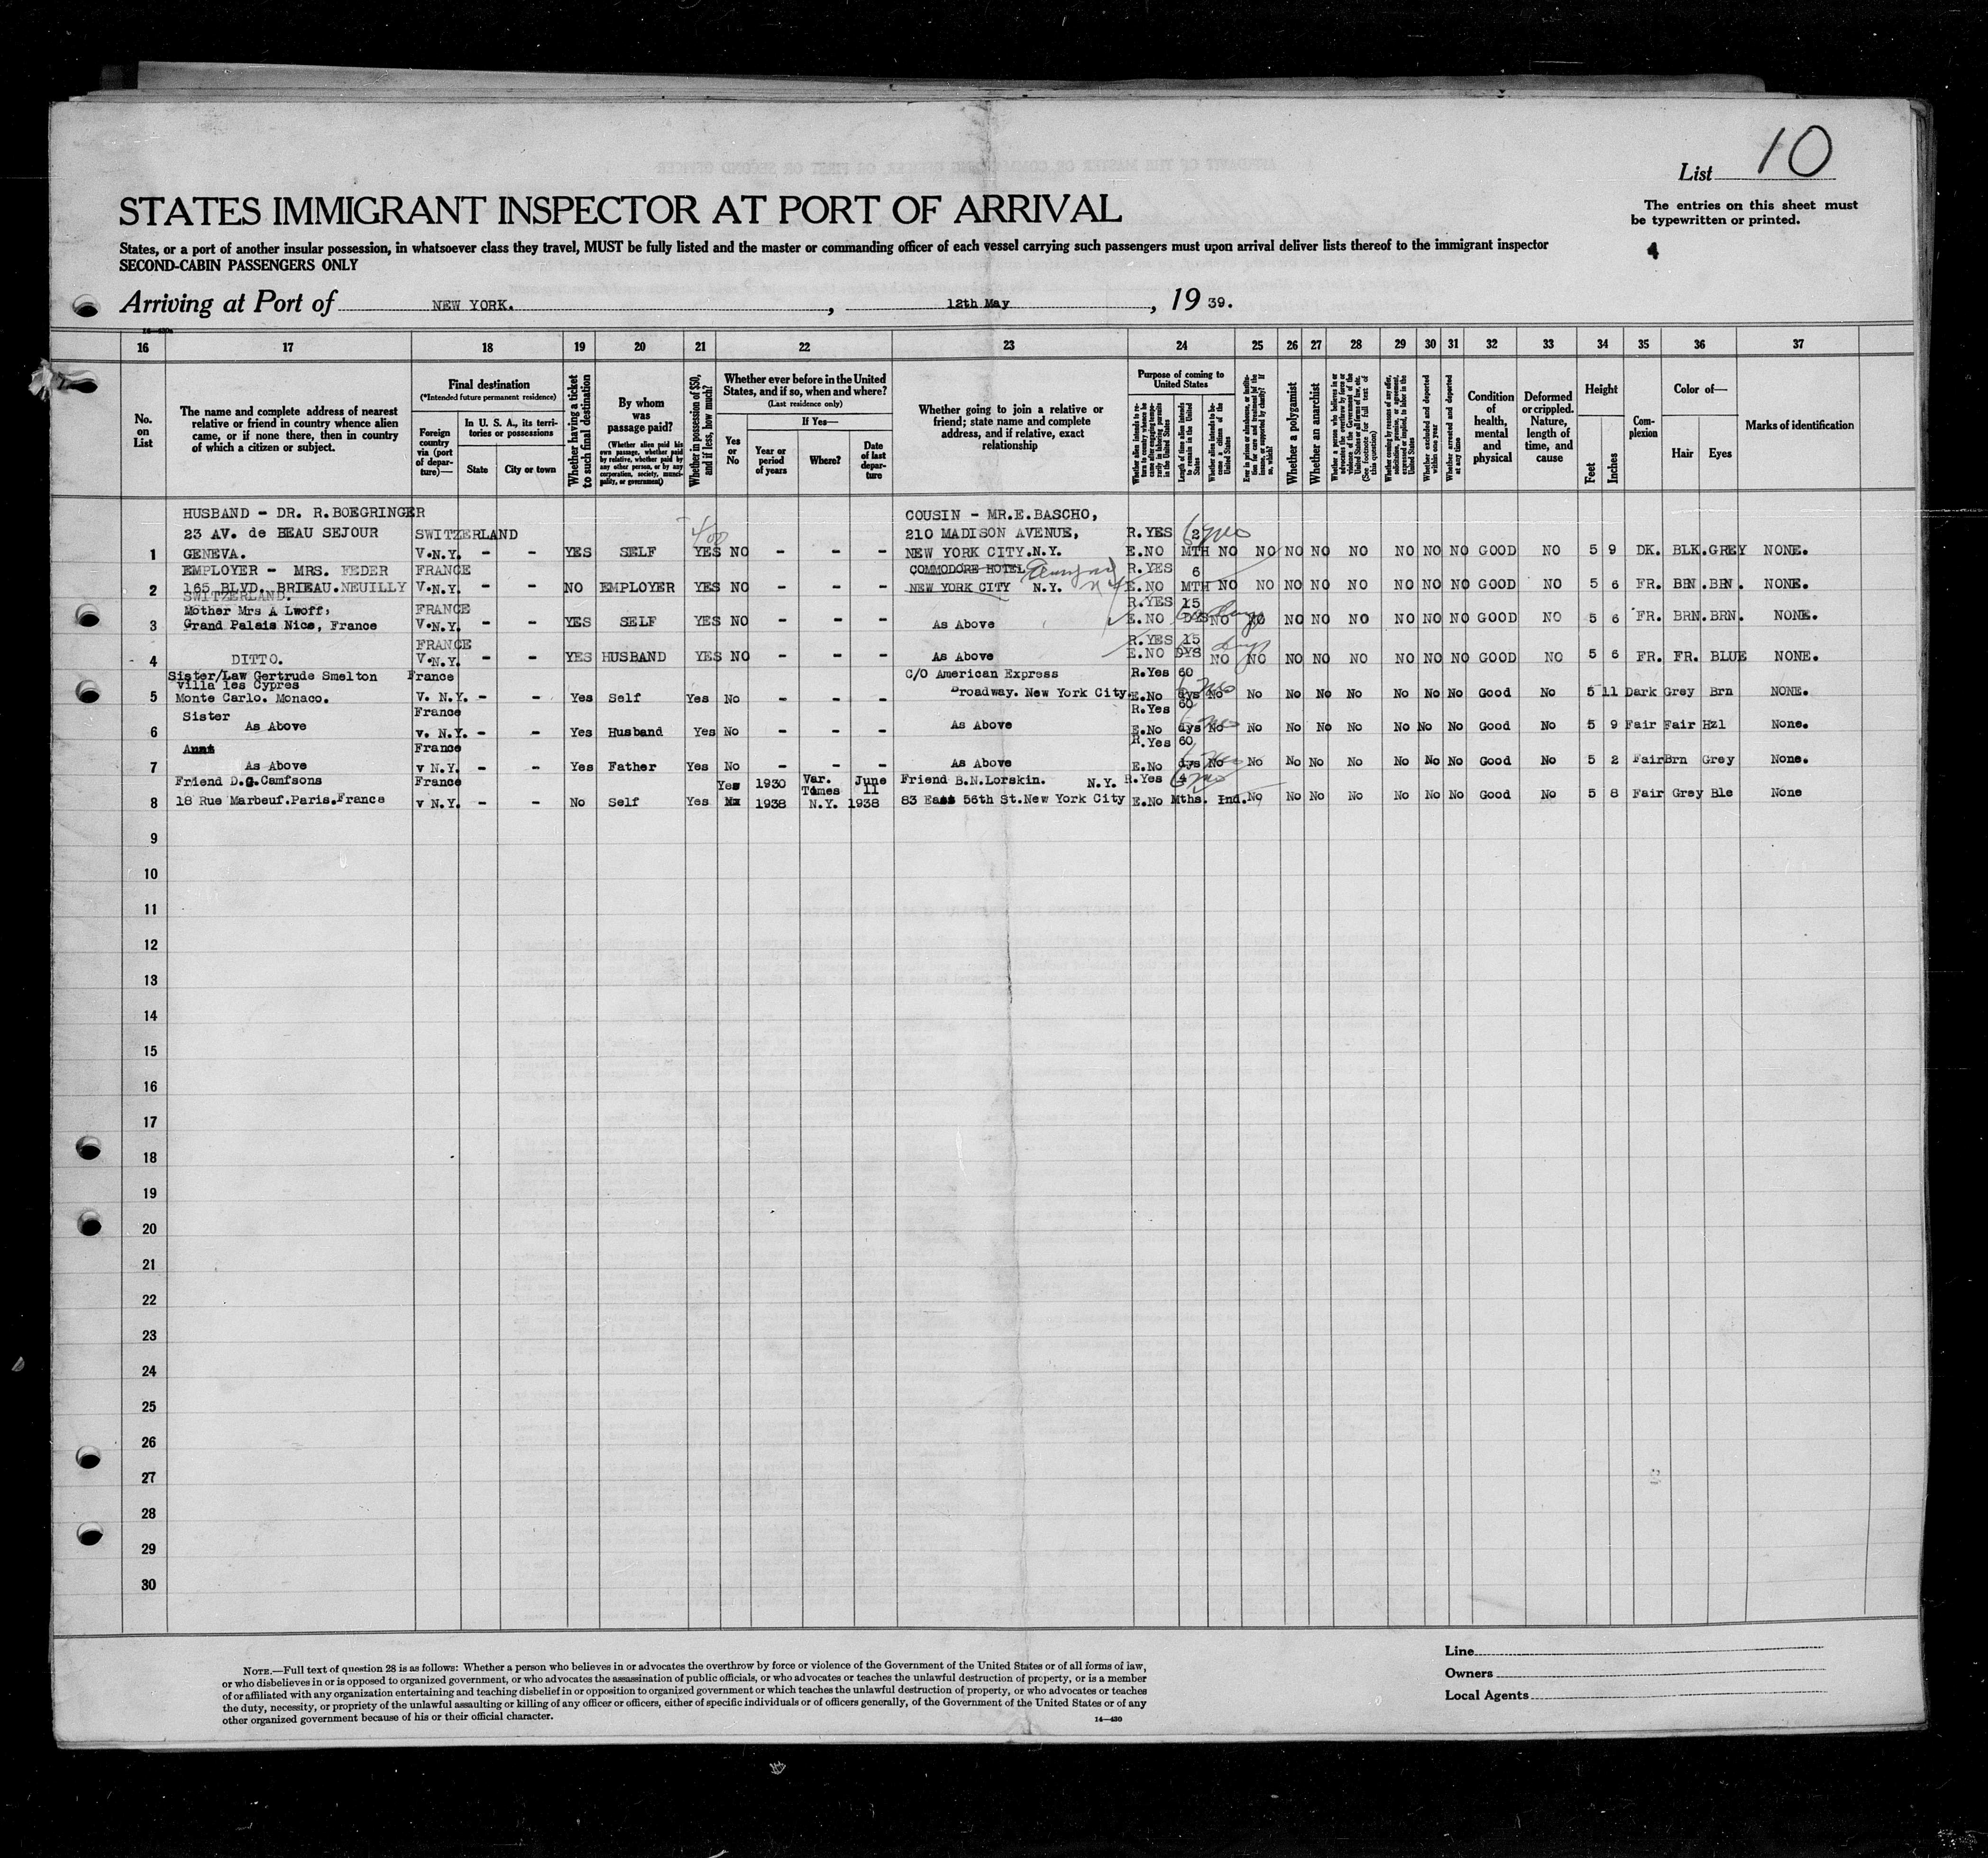 List 10
STATES IMMIGRANT INSPECTOR AT PORT OF ARRIVAL
The entries on this sheet must
be typewritten or printed.
States, or a port of another insular possession, in whatsoever class they travel, MUST be fully listed and the master or commanding officer of each vessel carrying such passengers must upon arrival deliver lists thereof to the immigrant inspector
SECOND-CABIN PASSENGERS ONLY
4
Arriving at Port of NEW YORK. , 12th May , 19 39.
16 17 18 19 20 21 22 23 24 25 26 27 28 29 30 31 32 33 34 35 36 37
No. on List
The name and complete address of nearest relative or friend in country whence alien came, or if none there, then in country of which a citizen or subject.
Final destination
(*Intended future permanent residence)
Foreign country via (port of departure)—
In U. S. A., its territories or possessions
State
City or town
Whether having a ticket to such final destination
By whom was passage paid?
(Whether alien paid his own passage, whether paid by relative, whether paid by any other person, or by any corporation, society, municipality, or government)
Whether in possession of $50, and if less, how much?
Whether ever before in the United States, and if so, when and where?
(Last residence only)
Yes or No
If Yes—
Year or period of years
Where?
Date of last departure
Whether going to join a relative or friend; state name and complete address, and if relative, exact relationship
Purpose of coming to United States
Whether alien intends to return to country whence he came after engaging temporarily in laboring pursuits in the United States
Length of time alien intends to remain in the United States
Whether alien intends to become a citizen of the United States
Ever in prison or almshouse, or institution for care and treatment of the insane, or supported by charity? If so, which?
Whether a polygamist
Whether an anarchist
Whether a person who believes in or advocates the overthrow by force or violence of the Government of the United States or all forms of law, etc. (See footnote for full text of this question)
Whether coming by reason of any offer, solicitation, promise, or agreement, expressed or implied, to labor in the United States
Whether excluded and deported within one year
Whether arrested and deported at any time
Condition of health, mental and physical
Deformed or crippled. Nature, length of time, and cause
Height
Feet
Inches
Complexion
Color of—
Hair
Eyes
Marks of identification
HUSBAND - DR. R.BOEGRINGER COUSIN - MR.E.BASCHO,
23 AV. de BEAU SEJOUR SWITZERLAND 400 210 MADISON AVENUE, R.YES 2 6 mo
1 GENEVA. V.N.Y. - - YES SELF YES NO - - - NEW YORK CITY.N.Y. E.NO MTH NO NO NO NO NO NO NO NO GOOD NO 5 9 DK. BLK.GREY NONE.
EMPLOYER - MRS. FEDER FRANCE COMMODORE HOTEL R.YES 6
2 165 BLVD. BRIEAU.NEUILLY V.N.Y. - - NO EMPLOYER YES NO - - - NEW YORK CITY N.Y. E.NO MTH NO NO NO NO NO NO NO NO GOOD NO 5 6 FR. BRN.BRN. NONE.
SWITZERLAND.
Mother Mrs A Lwoff, FRANCE R.YES 15
3 Grand Palais Nice, France V.N.Y. - - YES SELF YES NO - - - As Above E.NO DYS NO NO NO NO NO NO NO NO GOOD NO 5 6 FR. BRN.BRN. NONE.
FRANCE R.YES 15
4 DITTO. V.N.Y. - - YES HUSBAND YES NO - - - As Above E.NO DYS NO NO NO NO NO NO NO NO GOOD NO 5 6 FR. FR. BLUE NONE.
Sister/Law Gertrude Smelton France C/O American Express R.Yes 60
Villa les Cypres
5 Monte Carlo. Monaco. V. N.Y. - - Yes Self Yes No - - - Broadway. New York City. E.No dys No No No No No No No No Good No 5 11 Dark Grey Brn NONE.
Sister France R.Yes 60
6 As Above v. N.Y. - - Yes Husband Yes No - - - As Above E.No dys No No No No No No No No Good No 5 9 Fair Fair Hzl None.
Aunt France R.Yes 60
7 As Above v N.Y. - - Yes Father Yes No - - - As Above E.No dys No No No No No No No No Good No 5 2 Fair Brn Grey None.
Friend D.g.Camfsons France Yes 1930 Var. Times June 11 Friend B.N.Lorskin. N.Y. R.Yes 4 6 mo
8 18 Rue Marbeuf.Paris.France v N.Y. - - No Self Yes 1938 N.Y. 1938 83 East 56th St.New York City E.No Mths. Ind. No No No No No No No Good No 5 8 Fair Grey Ble None
9
10
11
12
13
14
15
16
17
18
19
20
21
22
23
24
25
26
27
28
29
30
NOTE.—Full text of question 28 is as follows: Whether a person who believes in or advocates the overthrow by force or violence of the Government of the United States or of all forms of law,
or who disbelieves in or is opposed to organized government, or who advocates the assassination of public officials, or who advocates or teaches the unlawful destruction of property, or is a member
of or affiliated with any organization entertaining and teaching disbelief in or opposition to organized government or which teaches the unlawful destruction of property, or who advocates or teaches
the duty, necessity, or propriety of the unlawful assaulting or killing of any officer or officers, either of specific individuals or of officers generally, of the Government of the United States or of any
other organized government because of his or their official character.
14—430
Line
Owners
Local Agents